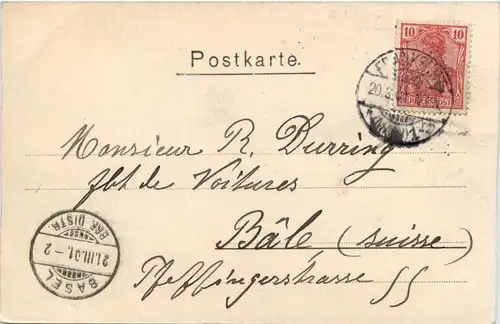 Postkarte.
10
REICHSPOST
20.3.
Monsieur R. Durring
fbt de Voitures
Bâle (suisse)
Pfeffingerstrasse 55
BASEL
21.III.01.-2
BRF. DISTR.